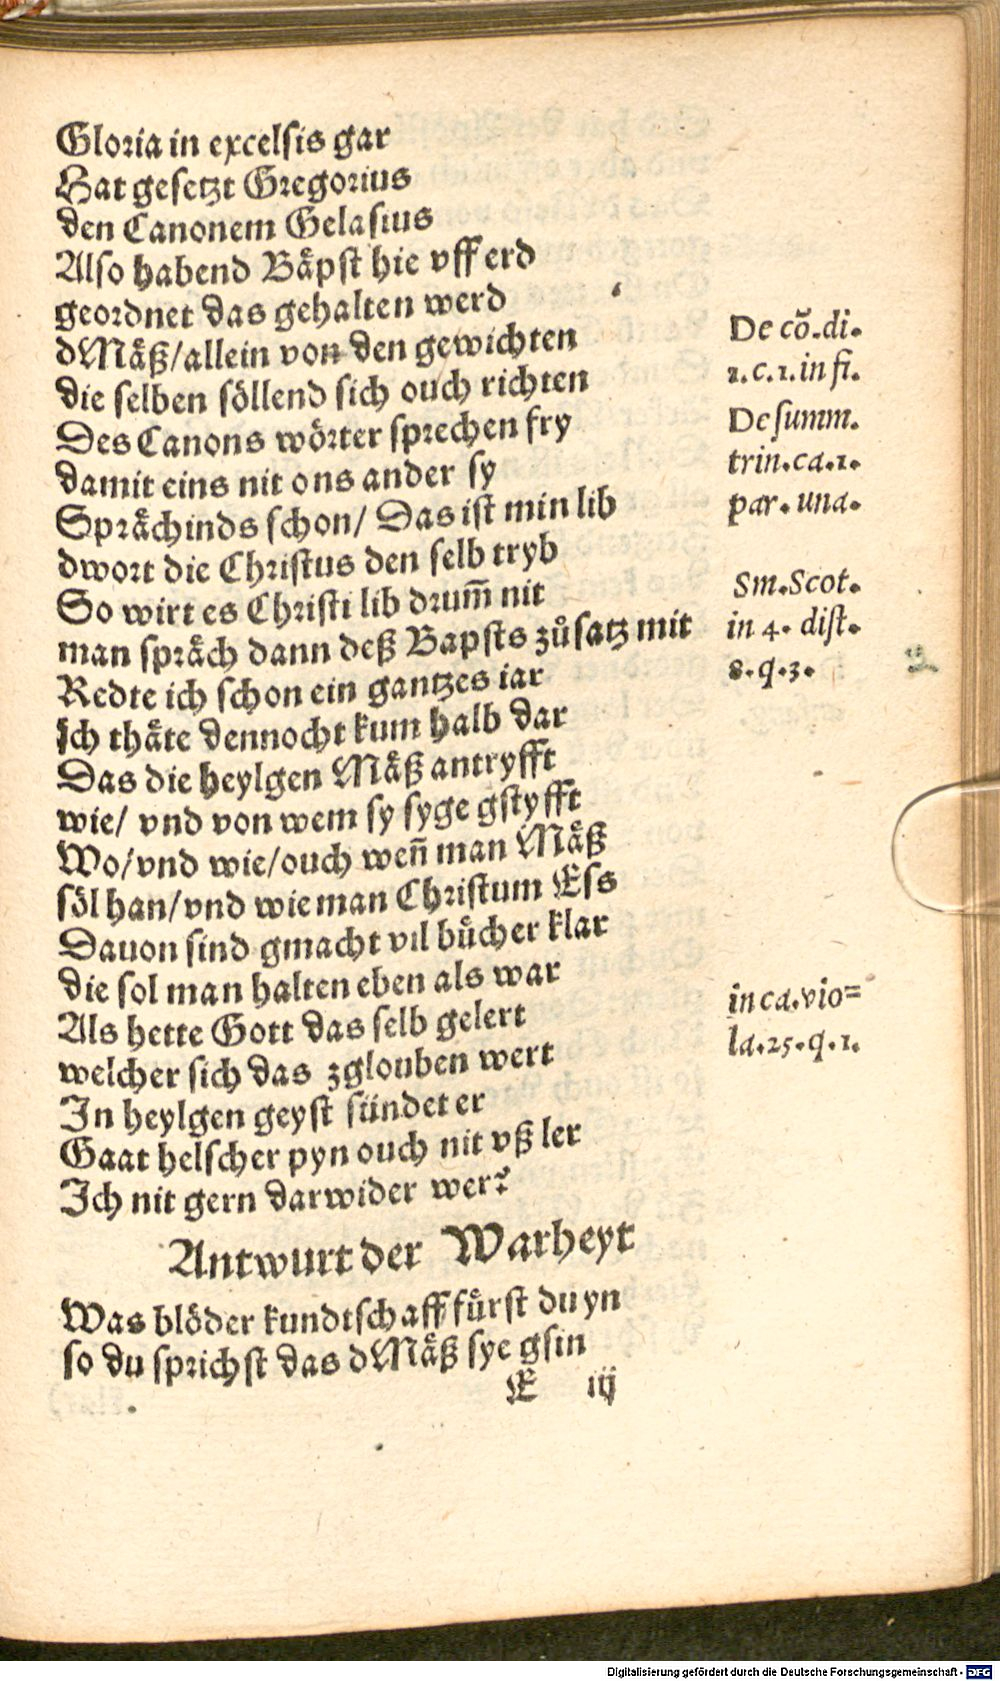 Gloria in excelsis gar
Hat gesetzt Gregorius
den Canonem Gelasius
Also habend Bäpst hie vff erd
geordnet das gehalten werd
dMäß/allein von den gewichten
die selben söllend sich ouch richten
Des Canons wörter sprechen fry
damit eins nit ons ander sy
Sprächinds schon/ Das ist min lib
dwort die Christus den selb tryb
So wirt es Christi lib drum̃ nit
man spräch dann deß Bapsts zůsatz mit
Redte ich schon ein gantzes iar
Ich thäte dennocht kum halb dar
Das die heylgen Mäß antryfft
wie/ vnd von wem sy syge gstyfft
Wo/vnd wie/ouch weñ man Mäß
söl han/vnd wie man Christum Ess
Dauon sind gmacht vil bücher klar
die sol man halten eben als war
Als hette Gott das selb gelert
welcher sich das zglouben wert
In heylgen geyst sündet er
Gaat helscher pyn ouch nit vß ler
Ich nit gern darwider wer?
Antwurt der Warheyt
Was blöder kundtschaff fürst du yn
so du sprichst das dMäß sye gsin
E iij
De cõ.di.
1.c.1.in fi.
De summ.
trin.ca.1.
par. una.
Sm.Scot.
in 4. dist.
8.q.3.
in ca.vio=
la.25.q.1.
Digitalisierung gefördert durch die Deutsche Forschungsgemeinschaft - DFG